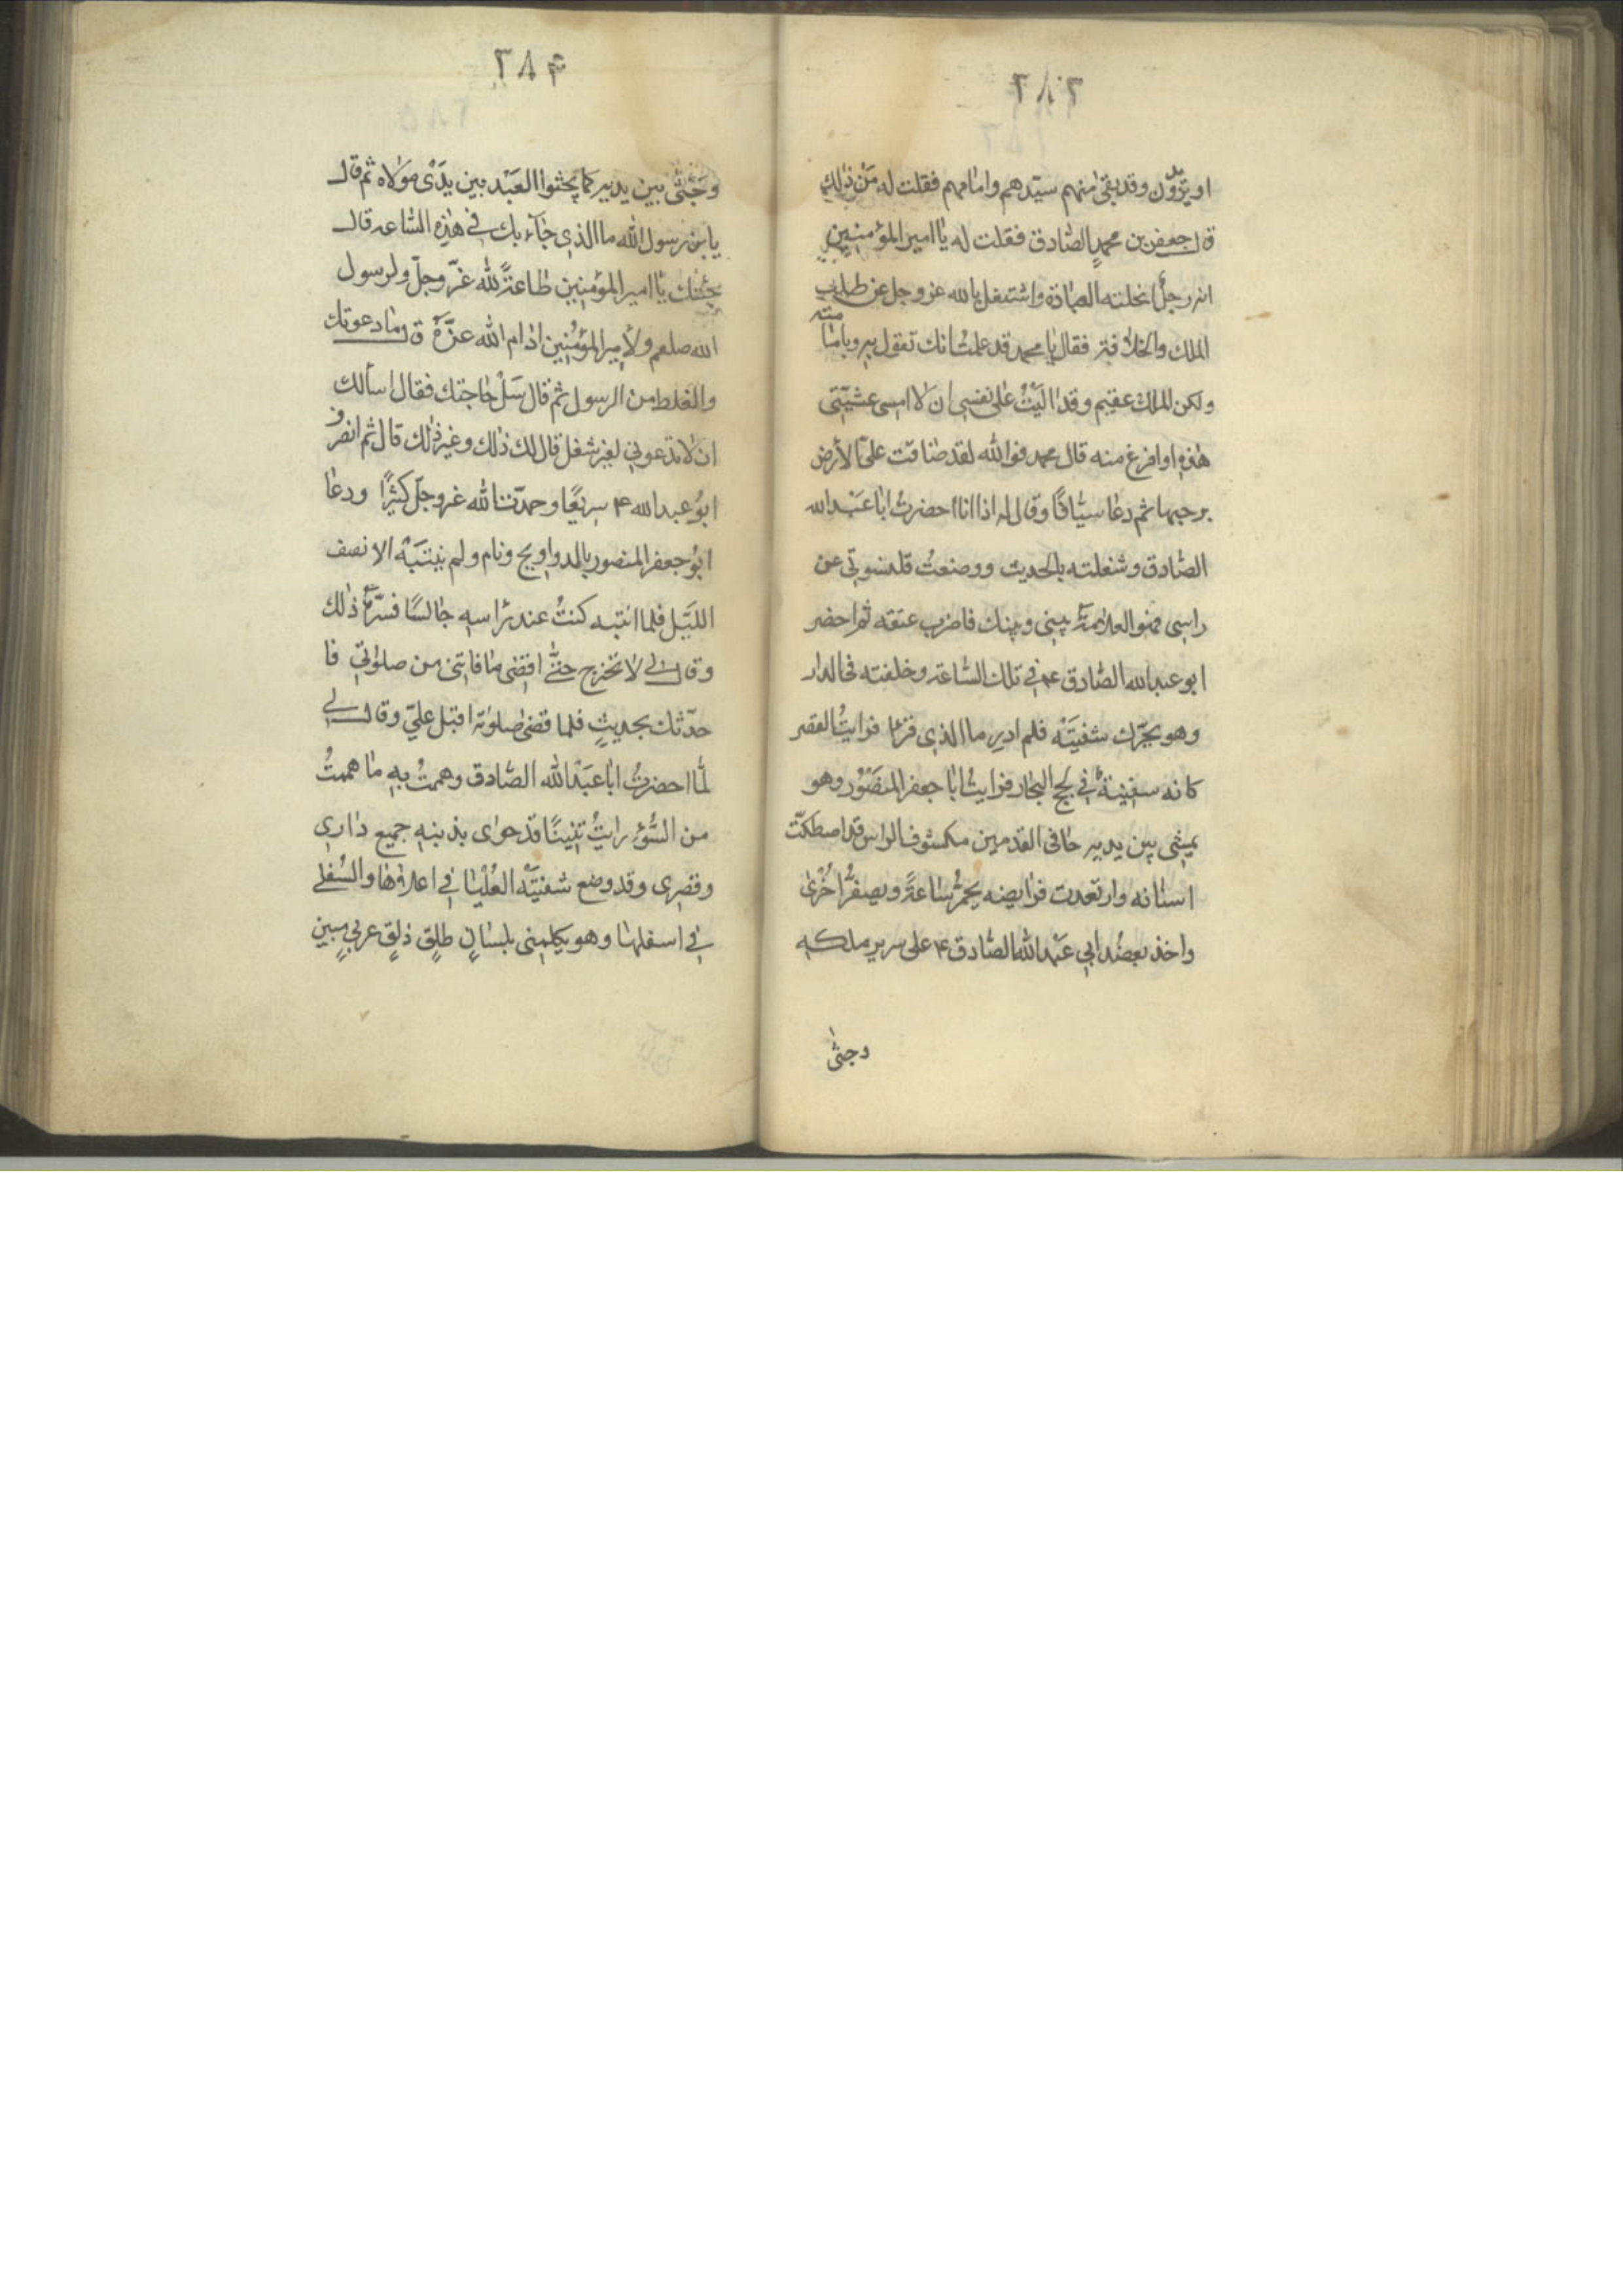 ٢٨٣
او يزيدون وقد بقى منهم سيّدهم وامامهم فقلت له مَنْ ذلك
قال جعفر بن محمدٍ الصّادق فقلت له يا امير المؤمنين
انه رجلٌ انحلته العبادة واشتغل بالله عز وجل عن طلب
الملك والخلافة فقال يا محمد قد علمتُ انك تقول به وبامامته
ولكن الملك عقيم وقد اليْتُ على نفسى ان لا امسى عشيّتى
هذه او افرغ منه قال محمد فوالله لقد ضاقت علىّ الأرض
برحبها ثم دعا سيّافًا وقال له اذا انا احضرتُ ابا عَبْد الله
الصّادق وشغلته بالحديث ووضعتُ قلنسوتى عن
راسى فهو العلامة بينى وبينك فاضرب عنقه ثم احضر
ابو عبد الله الصّادق ع م فى تلك السّاعة وخلفته فى الدار
وهو يحرّك شفتيَه فلم ادرِ ما الذى قرأ فرايتُ القصر
كانه سفينةٌ فى لجج البحار فرايتُ ابا جعفر المنصُوْر وهو
يمشى بين يديه حافى القدمين مكشوف الراس قد اصطكّت
اسنانه وارتعدت فرايصه يحمرُّ ساعةً ويصفرُّ اخْرى
واخذ بعضُد ابى عَبْد الله الصّادق ع م على سرير ملكه
وجثى
٢٨٤
وجَثىٰ بين يديه كما يجثوا العَبْد بين يدَىْ مَوْلاه ثم قال
يابن رسول الله ما الذى جآء بك فى هذِه السّاعه قال
جئتك يا امير المؤمنين طاعةً لله عزّ وجلّ ولرسول
الله صلعم ولأمير المؤمنين ادام الله عزّه قال ما دعوتك
والغلط من الرسول ثم قال سَلْ حاجتك فقال اسألك
ان لا تدعونى لغير شغل قال لك ذلك وغير ذلك قال ثم انصرف
ابوُ عبد الله ع م سريعًا وحمدتُ الله عز وجلّ كثيرًا ودعا
ابوُ جعفر المنصور بالدواويج ونام ولم ينتبَه الا نصف
الليَل فلما انتبه كنتُ عند رأسه جالسًا فسَرّهُ ذلك
وقال لى لا تخرج حتىّ اقضى ما فاتنى من صلوٰتى فا
حدّثك بحديثٍ فلما قضى صلوٰته اقبل علىّ وقال لى
لمّا احضرتُ ابا عَبْد الله الصّادق وهممتُ بهِ ما هممتُ
من السُّوْءِ رايتُ تنينًا قد حوٰى بذنبه جميع دارى
وقصرى وقد وضع شفتيَه العُلْيَا فى اعلاها والسُفلى
فى اسفلها وهو يكلمنى بلسانٍ طلقٍ ذلقٍ عربىٍ مبينٍ